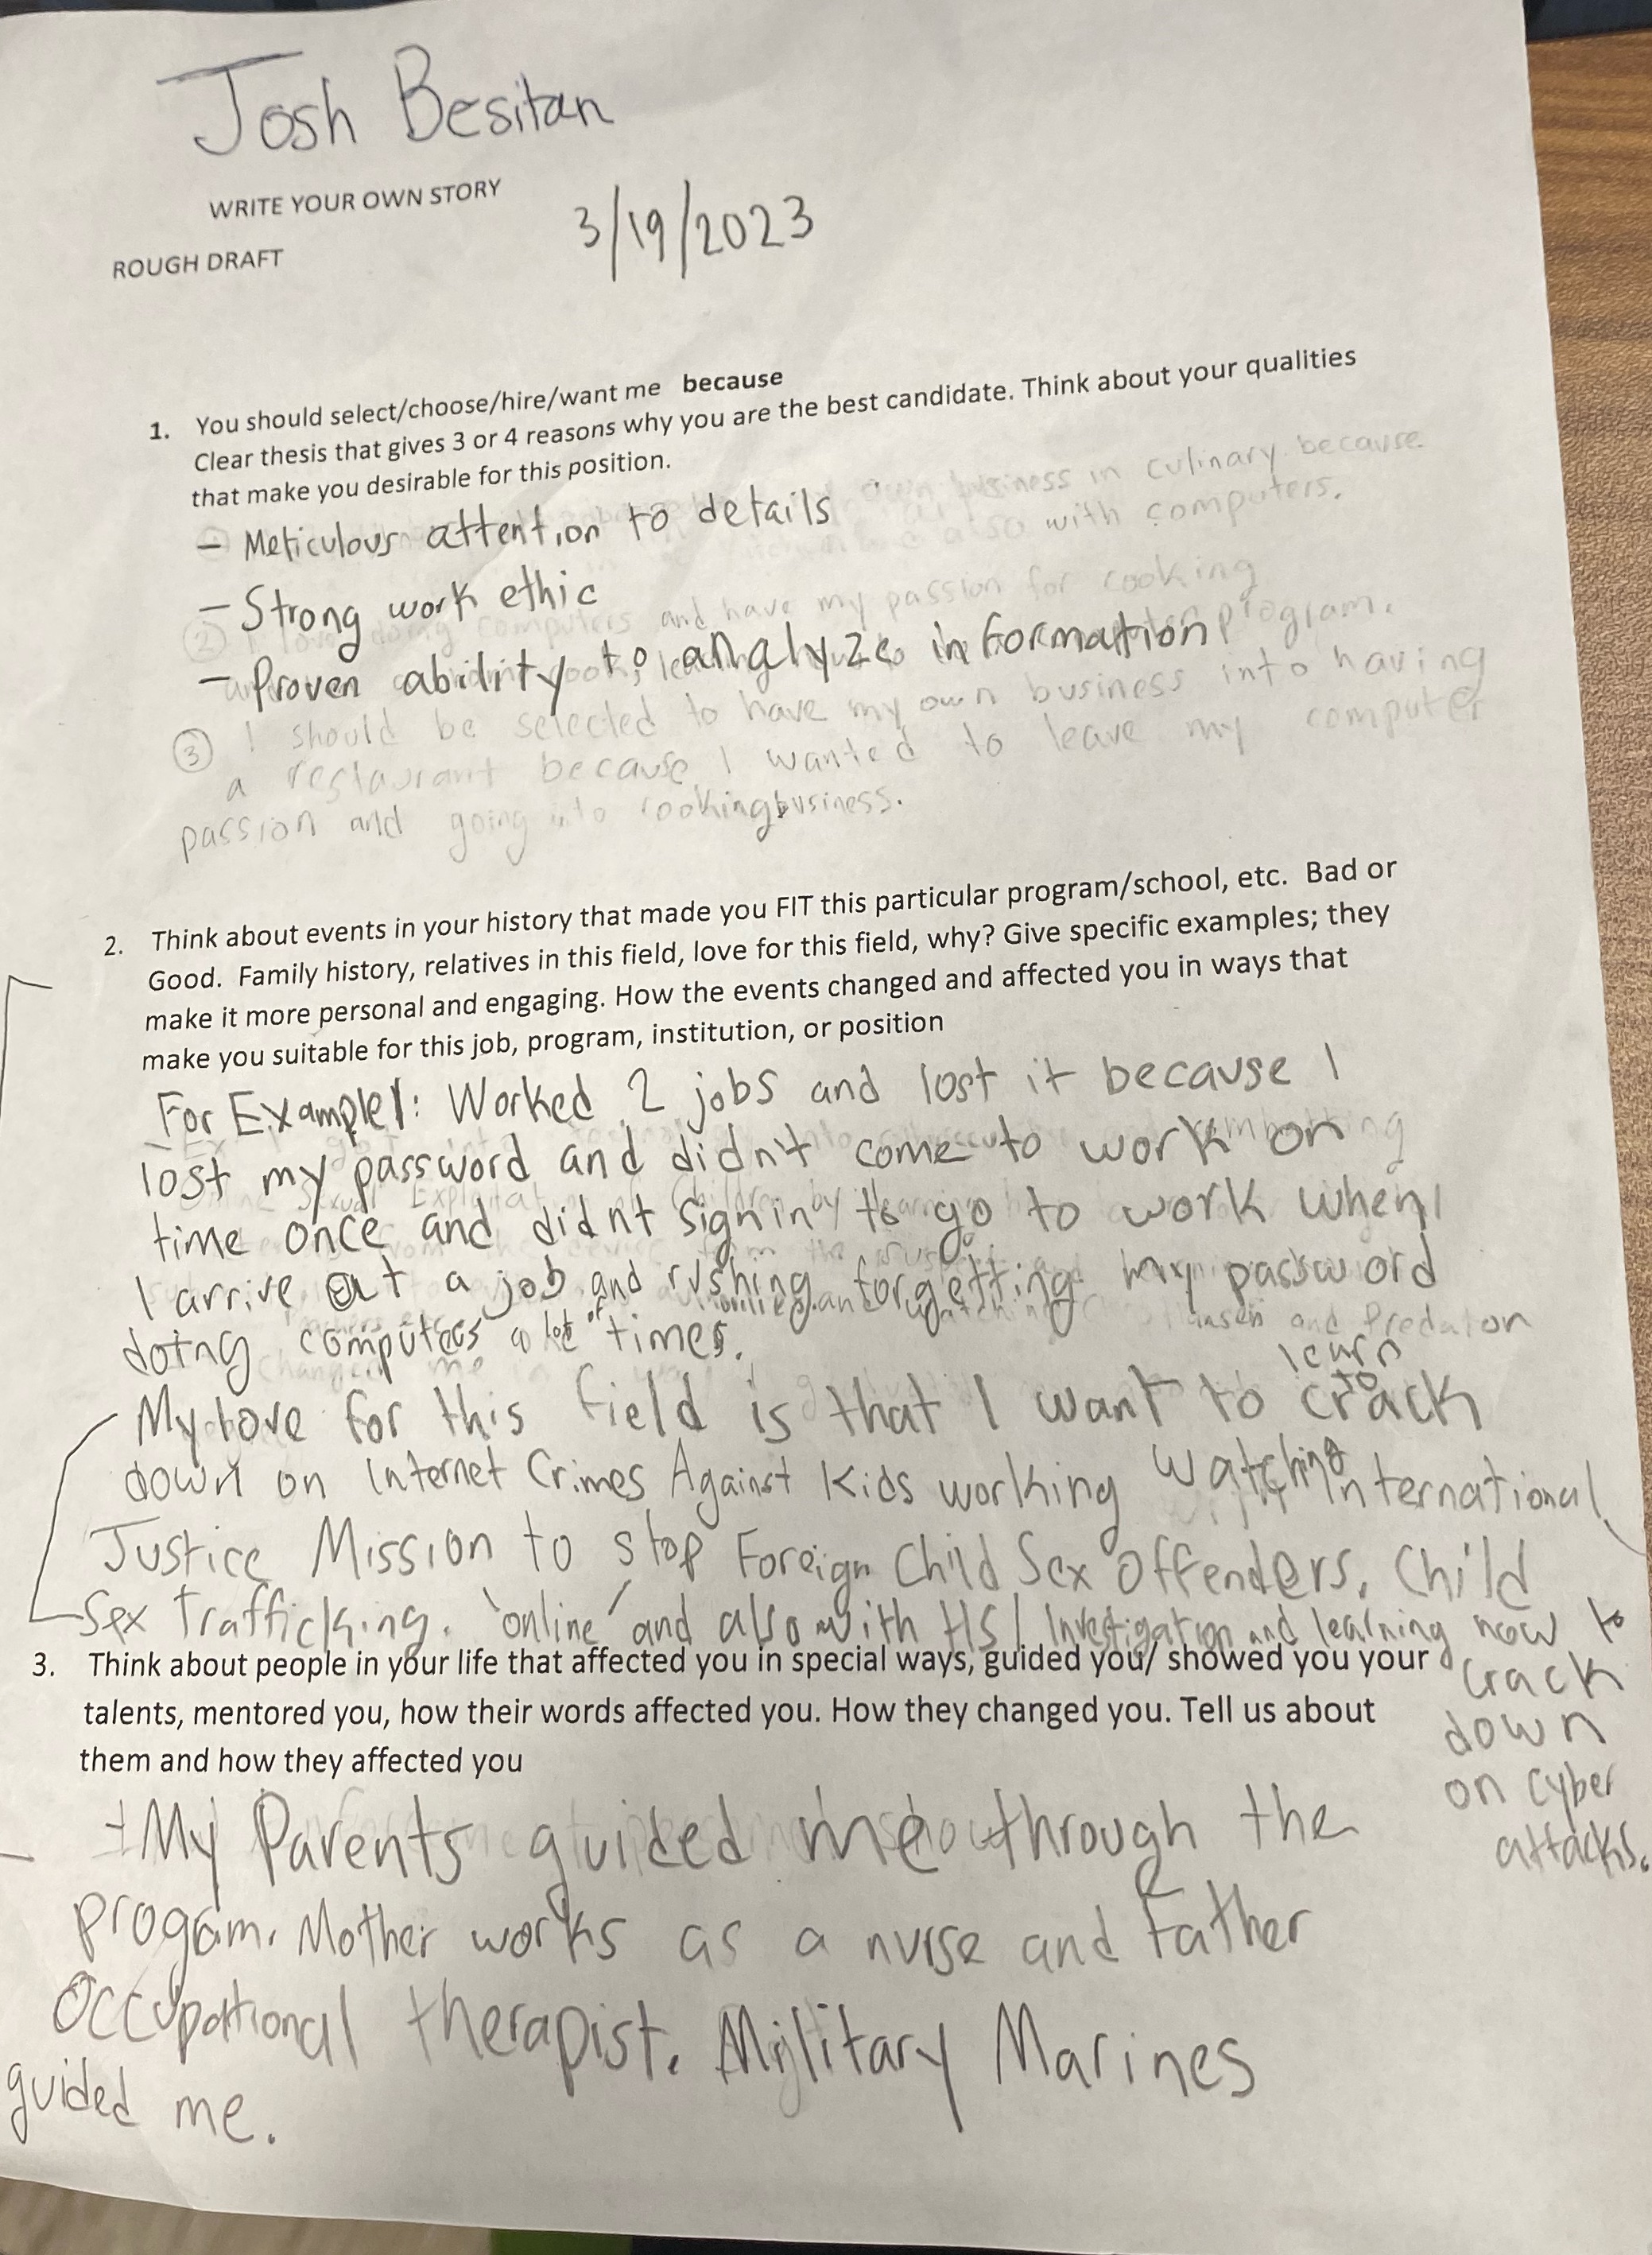 Josh Besitan
WRITE YOUR OWN STORY
3/19/2023
ROUGH DRAFT
1. You should select/choose/hire/want me because
Clear thesis that gives 3 or 4 reasons why you are the best candidate. Think about your qualities
that make you desirable for this position.
own business in culinary because
- Meticulous attention to details
also with computers.
- Strong work ethic
② I love doing computers and have my passion for cooking
- Proven ability to analyze information
program.
③ I should be selected to have my own business into having
a restaurant because I wanted to leave my computer
passion and going into cooking business.
2. Think about events in your history that made you FIT this particular program/school, etc. Bad or
Good. Family history, relatives in this field, love for this field, why? Give specific examples; they
make it more personal and engaging. How the events changed and affected you in ways that
make you suitable for this job, program, institution, or position
For Example 1: Worked 2 jobs and lost it because I
lost my password and didn't come to work on
time once and didn't sign in to go to work when I
I arrive at a job and rushing forgetting my password
doing computers a lot of times.
and Predator
My love for this field is that I want to learn to crack
down on Internet Crimes Against Kids working watching International
Justice Mission to stop Foreign Child Sex Offenders, Child
Sex Trafficking. 'online' and also with HSI Investigation and learning now to
crack
down
on cyber
attacks.
3. Think about people in your life that affected you in special ways, guided you/ showed you your
talents, mentored you, how their words affected you. How they changed you. Tell us about
them and how they affected you
- My Parents guided me through the
progam. Mother works as a nurse and Father
Occupational therapist. Military Marines
guided me.